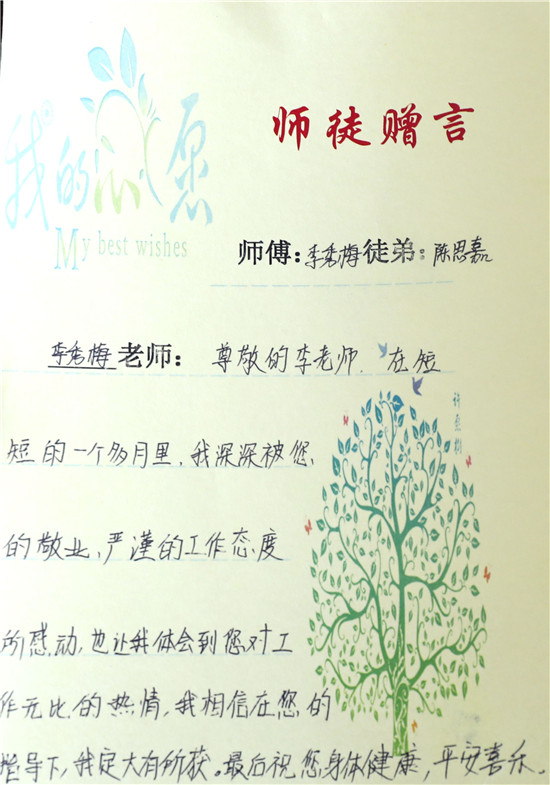 师徒赠言
我的心愿
My best wishes
师傅：李秀梅 徒弟：陈思嘉
李秀梅 老师： 尊敬的李老师，在短
许愿树
短的一个多月里，我深深被您
的敬业、严谨的工作态度
所感动，也让我体会到您对工
作无比的热情，我相信在您的
指导下，我定大有所获。最后祝您身体健康，平安喜乐。